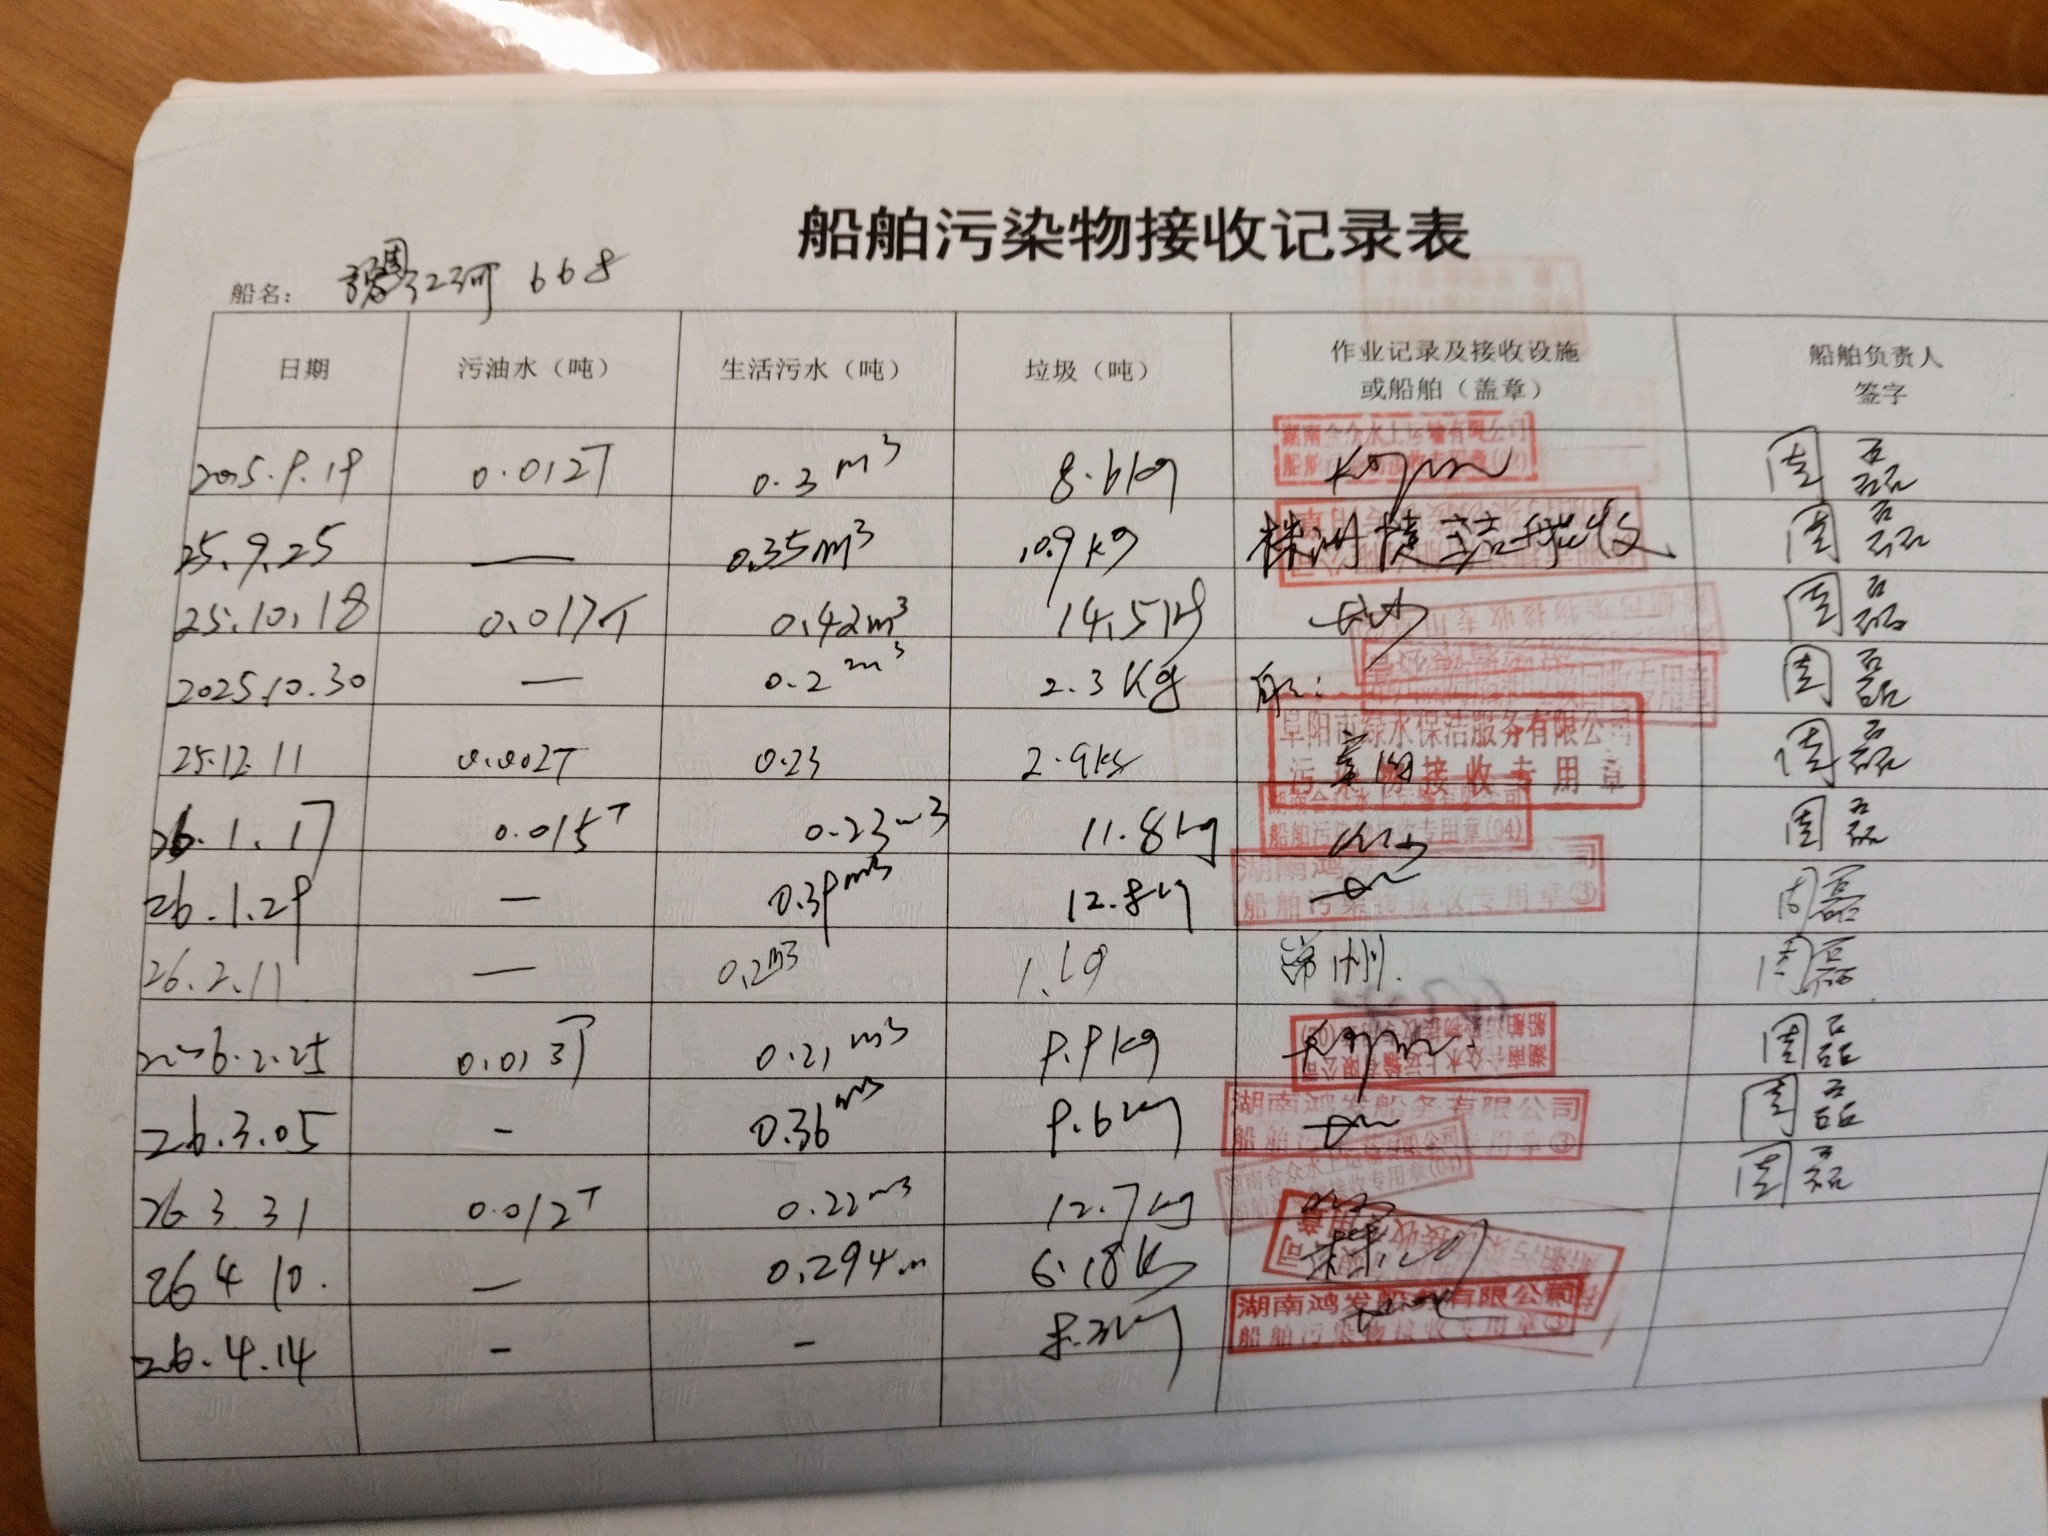 船舶污染物接收记录表
船名： 668
日期 污油水（吨） 生活污水（吨） 垃圾（吨） 作业记录及接收设施或船舶（盖章） 船舶负责人签字
2025.9.19 0.012T 0.3m³ 8.6kg 湖南合众水上运输有限公司 周磊
25.9.25 — 0.35m³ 10.9kg 株洲 接收 周磊
25.10.18 0.017T 0.42m³ 14.5kg 周磊
2025.10.30 — 0.2m³ 2.3Kg 周磊
25.12.11 0.002T 0.23 2.9kg 阜阳市绿水保洁服务有限公司 污染物接收专用章 周磊
26.1.17 0.015T 0.23m3 11.8kg 湖南合众水上运输有限公司 船舶污染物接收专用章(04) 周磊
26.1.29 — 0.39m3 12.8kg 湖南鸿发船务有限公司 船舶污染物接收专用章③ 周磊
26.2.11 — 0.2m3 常州. 周磊
2026.2.25 0.013T 0.21m3 9.9kg 湖南合众水上运输有限公司 周磊
26.3.05 - 0.36m3 9.6kg 湖南鸿发船务有限公司 船舶污染物接收专用章③ 周磊
26 3 31 0.012T 0.22m3 12.7kg 湖南合众水上运输有限公司 周磊
26 4 10. — 0.294m 6.18Kg
26.4.14 - - 8.3kg 湖南鸿发船务有限公司 船舶污染物接收专用章③